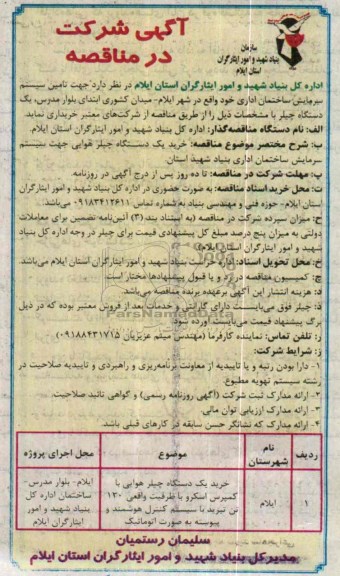 آگهی شرکت
در مناقصه
سازمان
بنیاد شهید و امور ایثارگران
استان ایلام
اداره کل بنیاد شهید و امور ایثارگران استان ایلام در نظر دارد جهت تامین سیستم
سرمایش ساختمان اداری خود واقع در شهر ایلام- میدان کشوری ابتدای بلوار مدرس، یک
دستگاه چیلر با مشخصات ذیل را از طریق مناقصه از شرکت‌های معتبر خریداری نماید.
الف: نام دستگاه مناقصه‌گذار: اداره کل بنیاد شهید و امور ایثارگران استان ایلام.
ب: شرح مختصر موضوع مناقصه: خرید یک دستگاه چیلر هوایی جهت سیستم
سرمایش ساختمان اداری بنیاد شهید استان.
پ: مهلت شرکت در مناقصه: تا ده روز پس از درج آگهی در روزنامه.
ت: محل خرید اسناد مناقصه: به صورت حضوری در اداره کل بنیاد شهید و امور ایثارگران
استان ایلام- حوزه فنی و مهندسی بنیاد به شماره تماس ۰۹۱۸۳۴۱۲۶۱۱ می‌باشد.
ج: میزان سپرده شرکت در مناقصه (به استناد بند (۳) آئین‌نامه تضمین برای معاملات
دولتی به میزان پنج درصد مبلغ کل پیشنهادی قیمت برای چیلر در وجه اداره کل بنیاد
شهید و امور ایثارگران استان ایلام)
خ: محل تحویل اسناد: اداره حراست بنیاد شهید و امور ایثارگران استان ایلام می‌باشد.
چ: کمیسیون مناقصه در رد و یا قبول پیشنهادها مختار است.
د: هزینه انتشار این آگهی برعهده برنده مناقصه می‌باشد.
ذ: چیلر فوق می‌بایست دارای گارانتی و خدمات بعد از فروش معتبر بوده که در ذیل
برگ پیشنهاد قیمت می‌بایست آورده شود.
ر: تلفن تماس: نماینده کارفرما (مهندس میثم عزیزیان ۰۹۱۸۸۴۳۱۷۱۵)
ز: شرایط شرکت:
۱- دارا بودن رتبه و یا تاییدیه از معاونت برنامه‌ریزی و راهبردی و تاییدیه صلاحیت در
رشته سیستم تهویه مطبوع.
۲- ارائه مدارک ثبت شرکت (آگهی روزنامه رسمی) و گواهی تائید صلاحیت.
۳- ارائه مدارک ارزیابی توان مالی.
۴- ارائه مدارک که نشانگر حسن سابقه در کارهای قبلی باشد.
ردیف نام شهرستان موضوع محل اجرای پروژه
۱ ایلام خرید یک دستگاه چیلر هوایی با کمپرس اسکرو با ظرفیت واقعی ۱۲۰ تن تبرید با سیستم کنترل هوشمند و پیوسته به صورت اتوماتیک ایلام- بلوار مدرس- ساختمان اداره کل بنیاد شهید و امور ایثارگران ایلام
سلیمان رستمیان
مدیرکل بنیاد شهید و امور ایثارگران استان ایلام